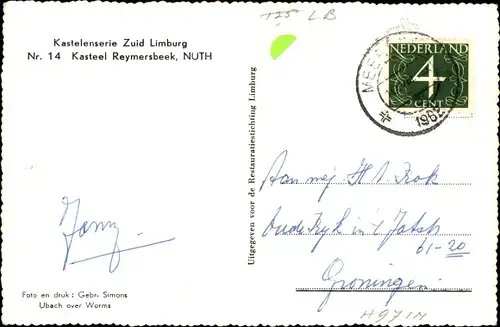 125 LB
Kastelenserie Zuid Limburg
Nr. 14 Kasteel Reymersbeek, NUTH
NEDERLAND
4
CENT
MEE
1962
Uitgegeven voor de Restauratiestichting Limburg
Aan mej H.
Oude Dijk in 't
61-20
Groningen
Jenny
Foto en druk : Gebr. Simons
Ubach over Worms
H971M